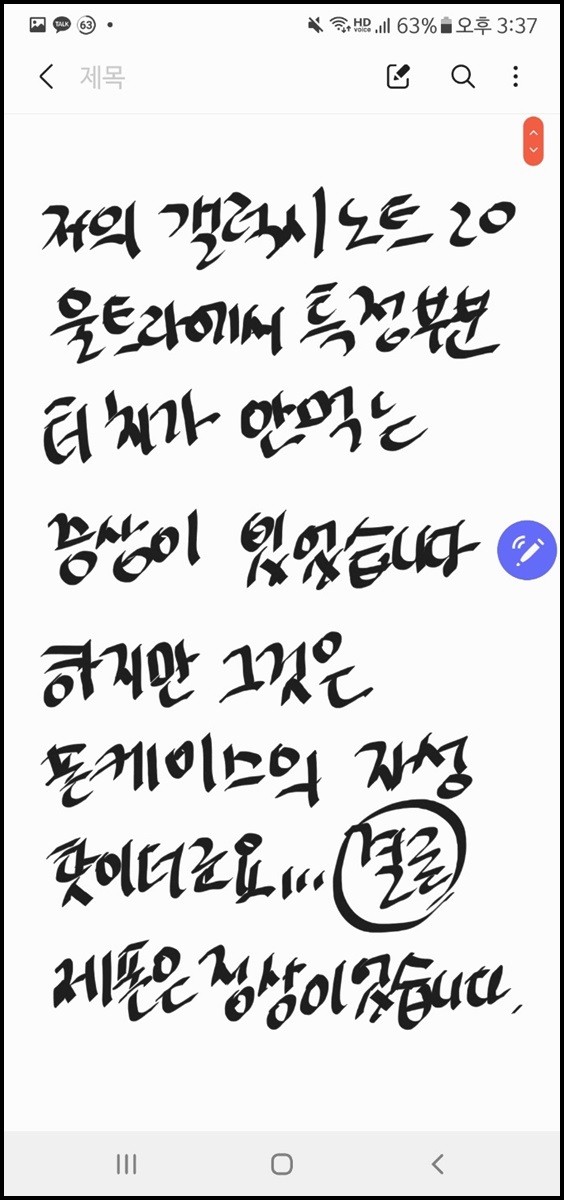 TALK 63 HD voice 63% 오후 3:37
제목
저의 갤럭시 노트 20
울트라에서 특정부분
터치가 안먹는
증상이 있었습니다
하지만 그것은
폰케이스의 자성
탓이더군요... 결론
제폰은 정상이었습니다.